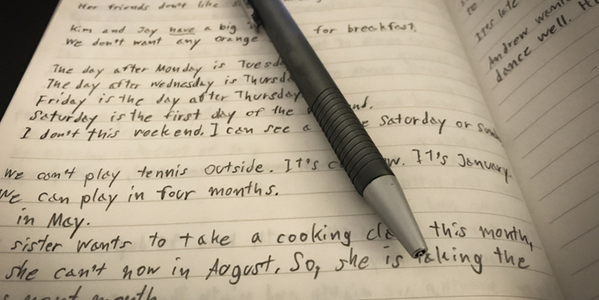 Her friends don't like
Kim and Joy have a big for breakfast.
We don't want any orange
The day after Monday is Tuesd
The day after Wednesday is Thursd
Friday is the day after Thursday
Saturday is the first day of the end.
I don't this weekend. I can see a Saturday or
We can't play tennis outside. It's c w. It's January.
We can play in four months.
in May.
sister wants to take a cooking cla this month,
she can't now in August. So, she is taking the
next month
to
It's late
Andrew wants
dance well. H